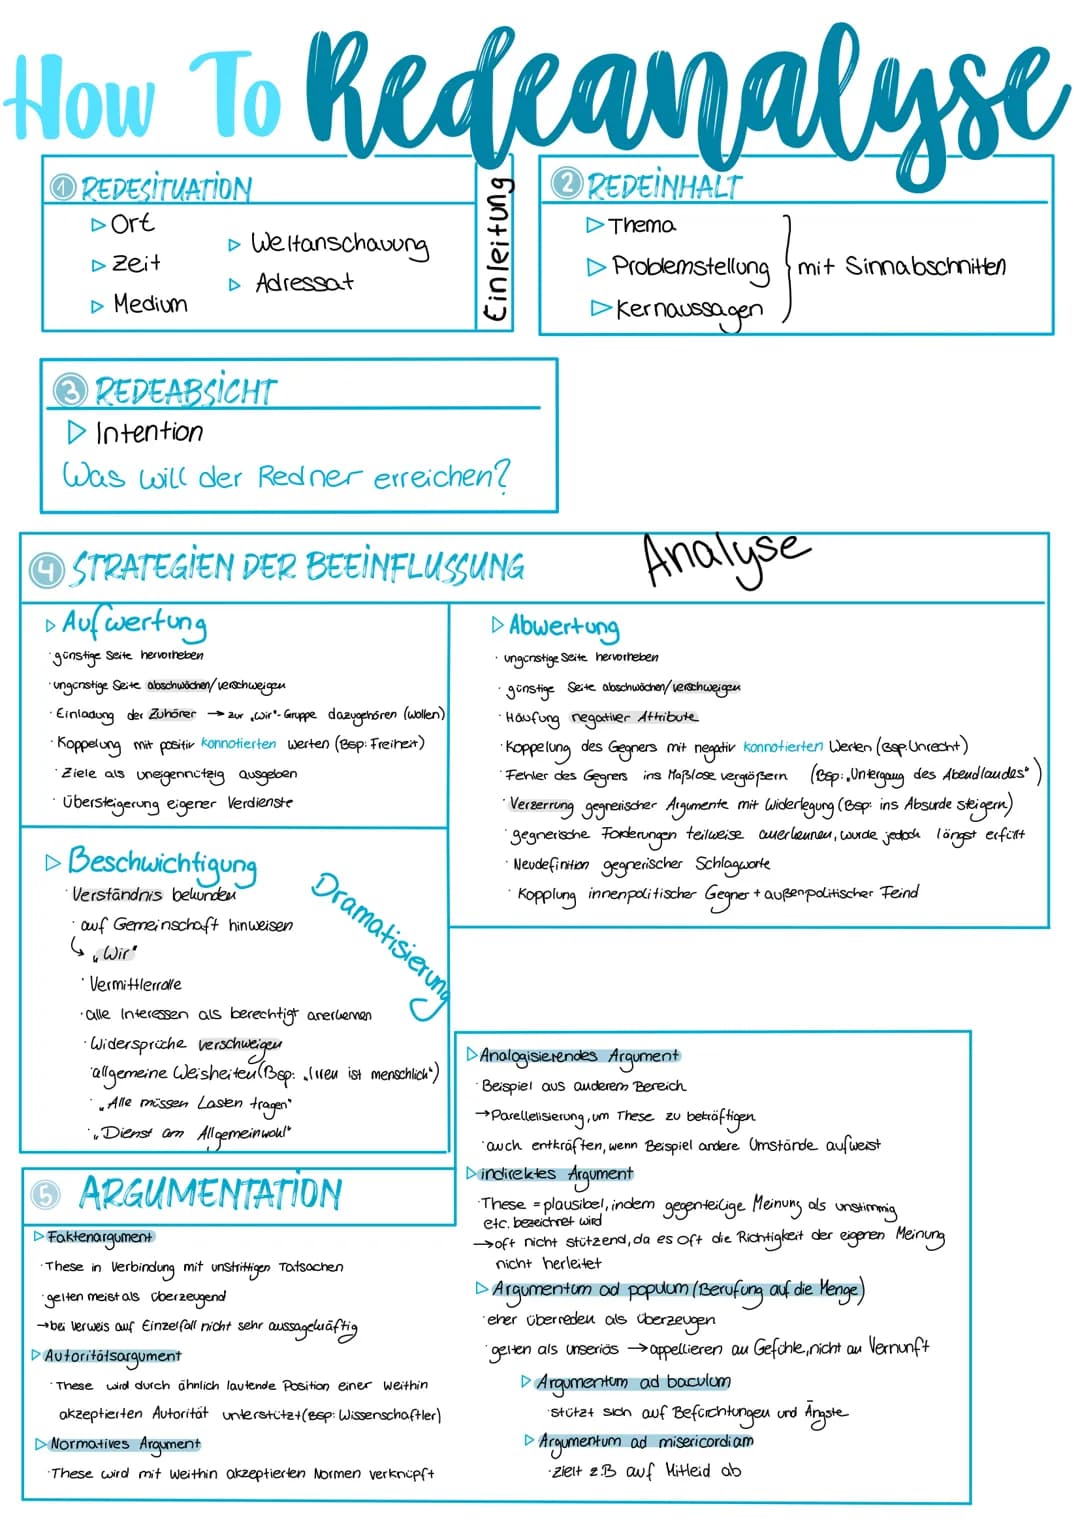 How To Redeanalyse
① REDESITUATION
▷ Ort
▷ Zeit
▷ Medium
▷ Weltanschauung
▷ Adressat
Einleitung
② REDEINHALT
▷ Thema
▷ Problemstellung
▷ Kernaussagen
mit Sinnabschnitten
③ REDEABSICHT
▷ Intention
Was will der Redner erreichen?
④ STRATEGIEN DER BEEINFLUSSUNG
Analyse
▷ Aufwertung
· günstige Seite hervorheben
· ungünstige Seite abschwächen/verschweigen
· Einladung der Zuhörer → zur „Wir"-Gruppe dazugehören (wollen)
· Koppelung mit positiv konnotierten Werten (Bsp: Freiheit)
· Ziele als uneigennützig ausgeben
· Übersteigerung eigener Verdienste
▷ Abwertung
· ungünstige Seite hervorheben
· günstige Seite abschwächen/verschweigen
· Häufung negativer Attribute
· Koppelung des Gegners mit negativ konnotierten Werten (Bsp: Unrecht)
· Fehler des Gegners ins Maßlose vergrößern (Bsp: „Untergang des Abendlandes")
· Verzerrung gegnerischer Argumente mit Widerlegung (Bsp: ins Absurde steigern)
· gegnerische Forderungen teilweise anerkennen, wurde jedoch längst erfüllt
· Neudefinition gegnerischer Schlagworte
· Kopplung innenpolitischer Gegner + außenpolitischer Feind
▷ Beschwichtigung
· Verständnis bekunden
· auf Gemeinschaft hinweisen
↳ „Wir"
· Vermittlerrolle
· alle Interessen als berechtigt anerkennen
· Widersprüche verschweigen
· allgemeine Weisheiten (Bsp: „Irren ist menschlich")
· „Alle müssen Lasten tragen"
· „Dienst am Allgemeinwohl"
Dramatisierung
⑤ ARGUMENTATION
▷ Faktenargument
· These in Verbindung mit unstrittigen Tatsachen
· gelten meist als überzeugend
→ bei Verweis auf Einzelfall nicht sehr aussagekräftig
▷ Autoritätsargument
· These wird durch ähnlich lautende Position einer weithin
akzeptierten Autorität unterstützt (Bsp: Wissenschaftler)
▷ Normatives Argument
· These wird mit weithin akzeptierten Normen verknüpft
▷ Analogisierendes Argument
· Beispiel aus anderem Bereich
→ Parellelisierung, um These zu bekräftigen
· auch entkräften, wenn Beispiel andere Umstände aufweist
▷ indirektes Argument
· These = plausibel, indem gegenteilige Meinung als unstimmig
etc. bezeichnet wird
→ oft nicht stützend, da es oft die Richtigkeit der eigenen Meinung
nicht herleitet
▷ Argumentum ad populum (Berufung auf die Menge)
· eher überreden als überzeugen
· gelten als unseriös → appellieren an Gefühle, nicht an Vernunft
▷ Argumentum ad baculum
· stützt sich auf Befürchtungen und Ängste
▷ Argumentum ad misericordiam
· zielt z.B auf Mitleid ab